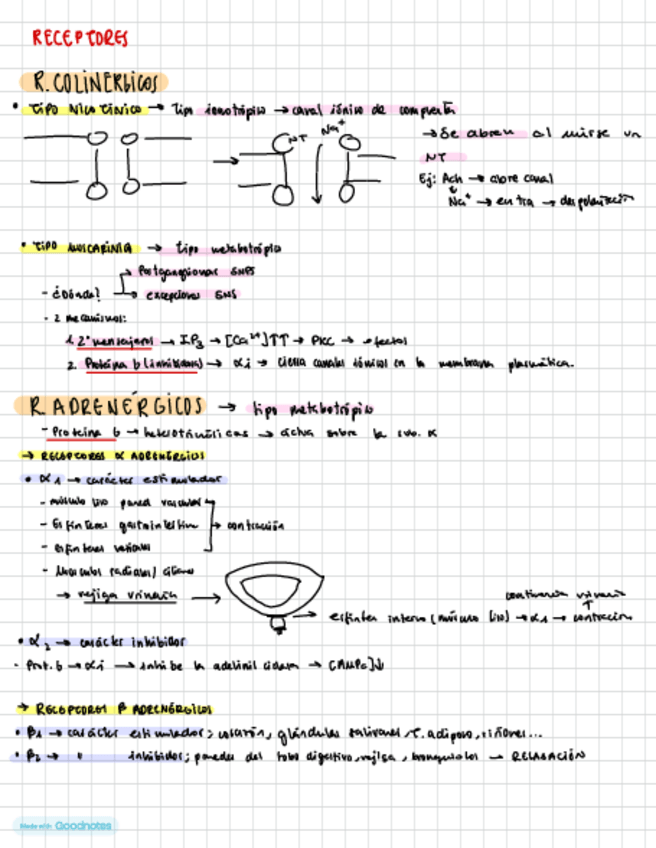 RECEPTORES
R. COLINÉRGICOS
• TIPO NICOTÍNICO → Tipo ionotrópico → canal iónico de compuerta
NT Na⁺
→ Se abren al unirse un
NT
Ej: Ach → abre canal
Na⁺ → entra → despolarización
• TIPO MUSCARINIA → tipo metabotrópico
- ¿Dónde?
Postganglionar SNPS
excepciones SNS
- 2 mecanismos:
1. 2º mensajeros → IP3 → [Ca²⁺]↑↑ → PKC → efectos
2. Proteína G (inhibidora) → αi → cierra canales iónicos en la membrana plasmática.
R. ADRENÉRGICOS → tipo metabotrópico
- Proteína G → heterotriméricas → actúa sobre la sub. α
→ RECEPTORES α ADRENÉRGICOS
• α1 → carácter estimulador
- músculo liso pared vascular
- Esfínteres gastrointestin
- esfínteres vesicales
→ contracción
- Músculos radiales/ ciliares
→ vejiga urinaria →
→ esfínter interno (músculo liso) → α1 → contracción
continencia urinaria
• α2 → carácter inhibidor
- Prot. G → αi → inhibe la adenilil ciclasa → [AMPc]↓
→ RECEPTORES β ADRENÉRGICOS
• β1 → carácter estimulador; corazón, glándulas salivares, T. adiposo, riñones...
• β2 → " inhibidor; paredes del tubo digestivo, vejiga, bronquiolos → RELAJACIÓN
Made with Goodnotes